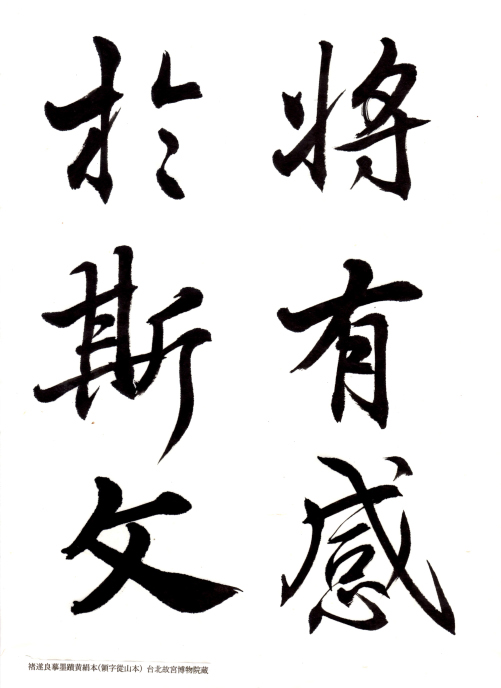 將有感
於斯文
褚遂良摹墨蹟黄絹本(領字從山本) 台北故宮博物院蔵